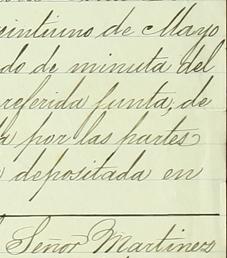 eintiuno de Mayo
do de minuta del
referida junta, de
a por las partes
a depositada en
Señor Martinez